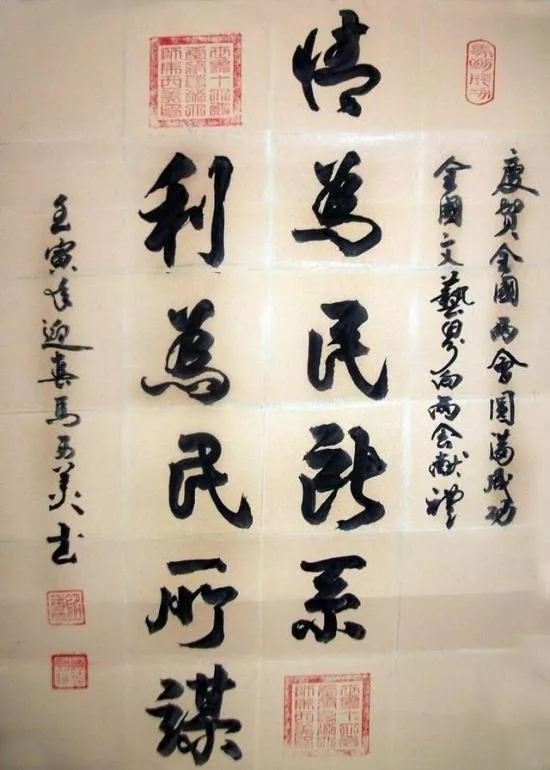 慶賀全國兩會圓滿成功
全國文藝界向兩会献禮
情為民所系
利為民所謀
壬寅年迎馬西美书